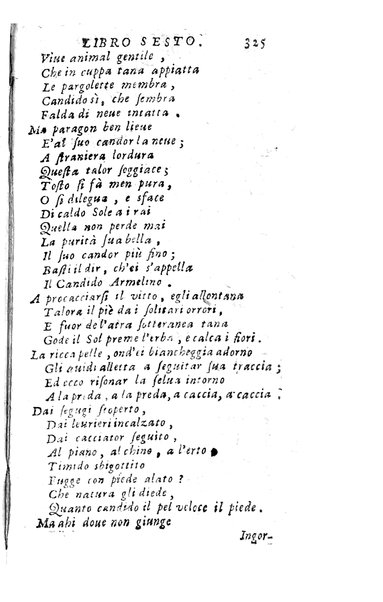 LIBRO SESTO. 325
Viue animal gentile,
Che in cuppa tana appiatta
Le pargolette membra,
Candido sì, che sembra
Falda di neue intatta.
Ma paragon ben lieue
E' al suo candor la neue;
A straniera lordura
Questa talor soggiace;
Tosto si fà men pura,
O si dilegua, e sface
Di caldo Sole ai rai
Quella non perde mai
La purità sua bella,
Il suo candor più fino;
Basti il dir, ch'ei s'appella
Il Candido Armelino.
A procacciarsi il vitto, egli allontana
Talora il piè da i solitari orrori,
E fuor de l'atra sotteranea tana
Gode il Sol preme l'erba, e calca i fiori.
La ricca pelle, ond'ei biancheggia adorno
Gli auidi alletta a seguitar sua traccia;
Ed ecco risonar la selua intorno
A la preda, a la preda, a caccia, a caccia.
Dai segugi scoperto,
Dai leurieri incalzato,
Dai cacciator seguito,
Al piano, al chino, a l'erto,
Timido sbigottito
Fugge con piede alato?
Che natura gli diede,
Quanto candido il pel veloce il piede.
Ma ahi doue non giunge
Ingor-